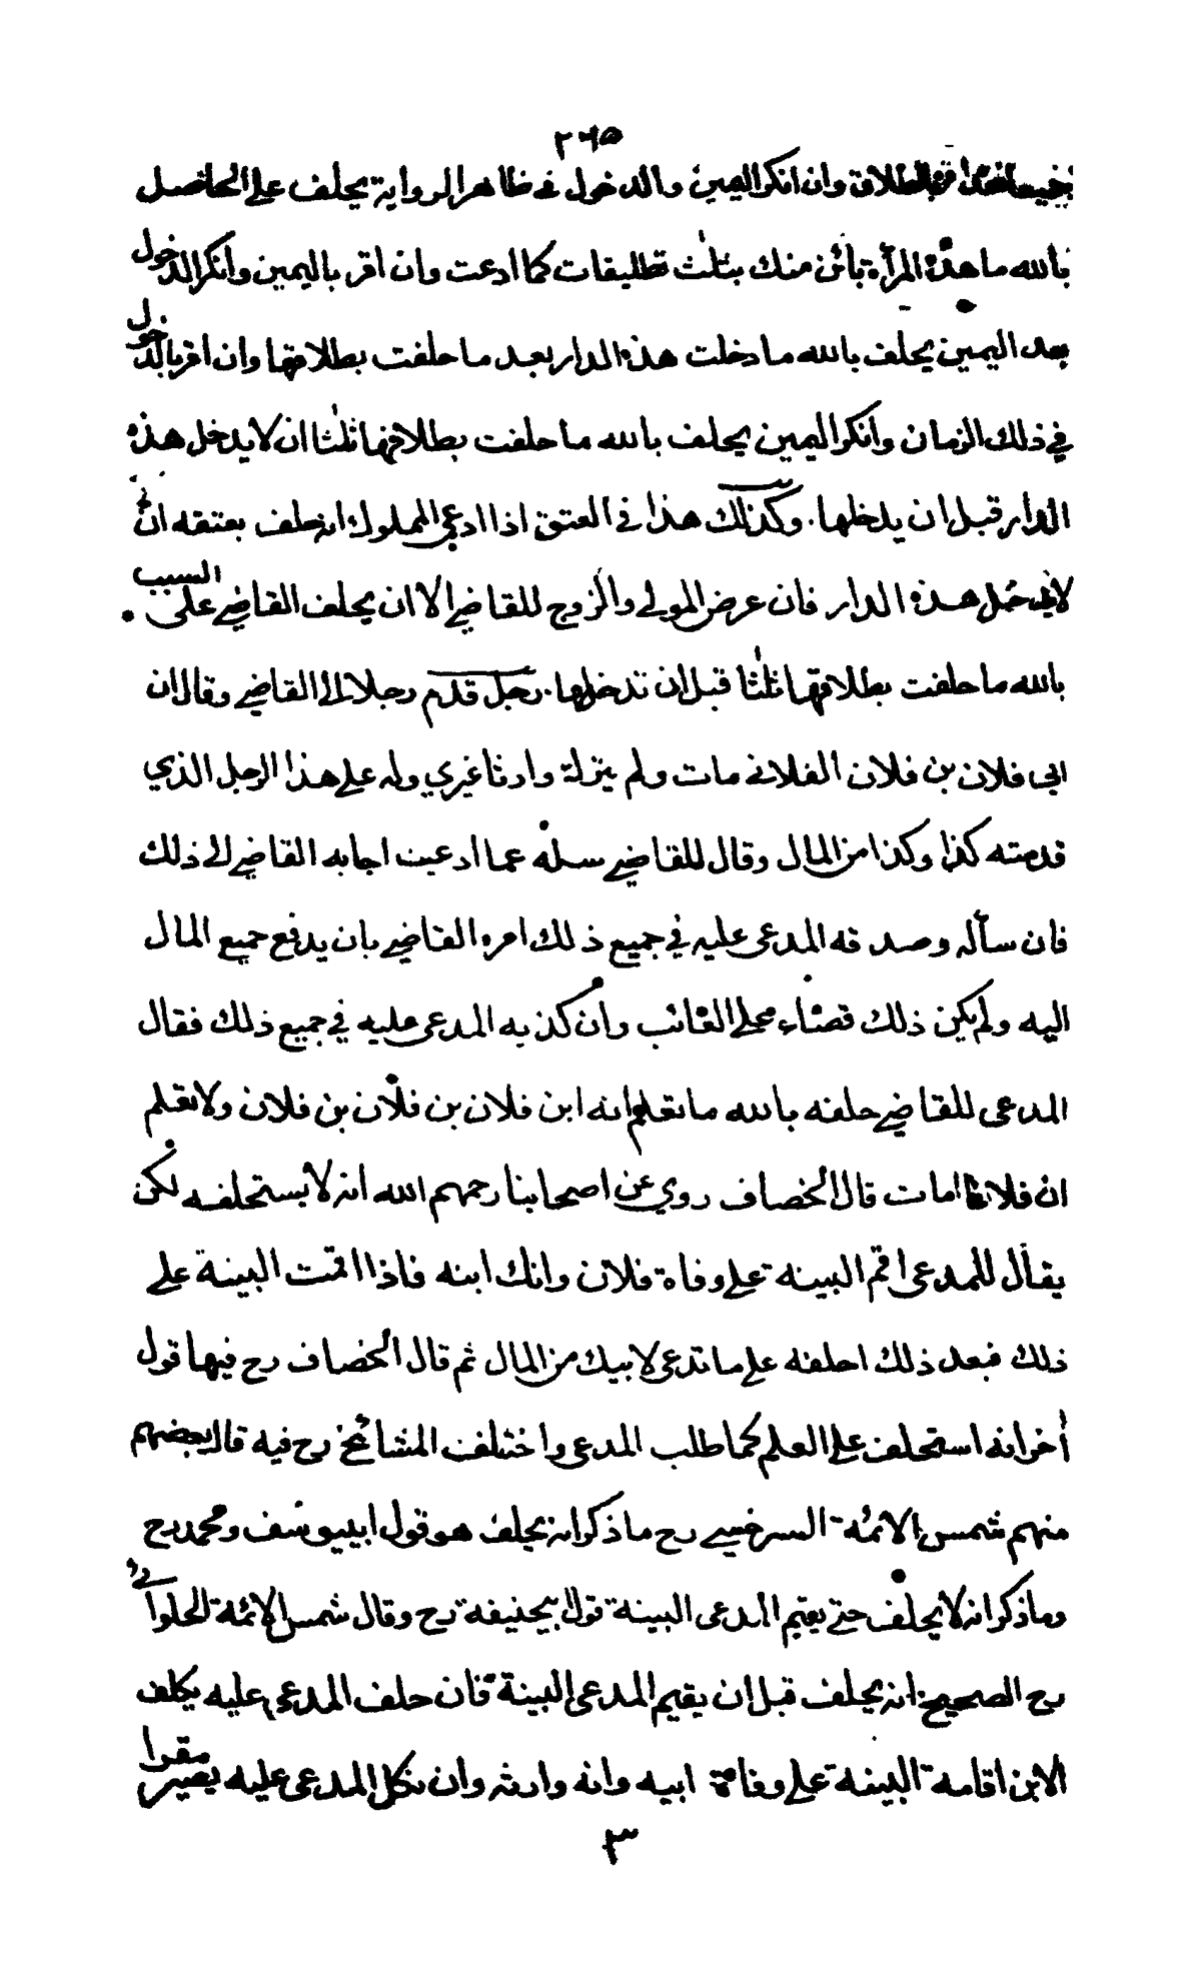 ٢٦٥
بالطلاق وان انكر اليمين والدخول فى ظاهر الرواية يحلف على الحاصل
بالله ما هذه المرأة بائن منك بثلث تطليقات كما ادعت وان اقر باليمين وانكر الدخول
بعد اليمين يحلف بالله ما دخلت هذه الدار بعد ما حلفت بطلاقها وان اقر بالدخول
في ذلك الزمان وانكر اليمين يحلف بالله ما حلفت بطلاقها ثلثا ان لا يدخل هذه
الدار قبل ان يدخلها . وكذلك هذا في العتق اذا ادعى المملوك انه حلف بعتقه ان
لا يدخل هذه الدار فان عرض المولي والزوج للقاضي الا ان يحلف القاضي على السبب
بالله ما حلفت بطلاقها ثلثا قبل ان تدخلها . رجل قدم رجلا الى القاضي وقال ان
ابى فلان بن فلان الفلانى مات ولم يترك وارثا غيري وله على هذا الرجل الذي
قدمته كذا وكذا من المال وقال للقاضي سله عما ادعيت اجابه القاضي الى ذلك
فان سأله وصدقه المدعى عليه في جميع ذلك امره القاضي بان يدفع جميع المال
اليه ولم يكن ذلك قضاء على الغائب وان كذبه المدعى عليه في جميع ذلك فقال
المدعى للقاضي حلفه بالله ما تعلم انه ابن فلان بن فلان بن فلان ولا تعلم
ان فلانا مات قال الخصاف روي عن اصحابنا رحمهم الله انه لا يستحلفه لكن
يقال للمدعى اقم البينة على وفاة فلان وانك ابنه فاذا اقمت البينة على
ذلك فبعد ذلك احلفه على ما تدعى لابيك من المال ثم قال الخصاف رح فيها قول
أخر انه استحلف على العلم كما طلب المدعى واختلف المشائخ رح فيه قال بعضهم
منهم شمس الائمة السرخسي رح ما ذكر انه يحلف هو قول ابيوسف ومحمد رح
وما ذكر انه لا يحلف حتى يقيم المدعى البينة قول ابيحنيفة رح وقال شمس الائمة الحلوائي
رح الصحيح انه يحلف قبل ان يقيم المدعى البينة فان حلف المدعى عليه يكلف
الابن اقامة البينة على وفاة ابيه وانه وارثه وان نكل المدعى عليه يصير مقرا
٣